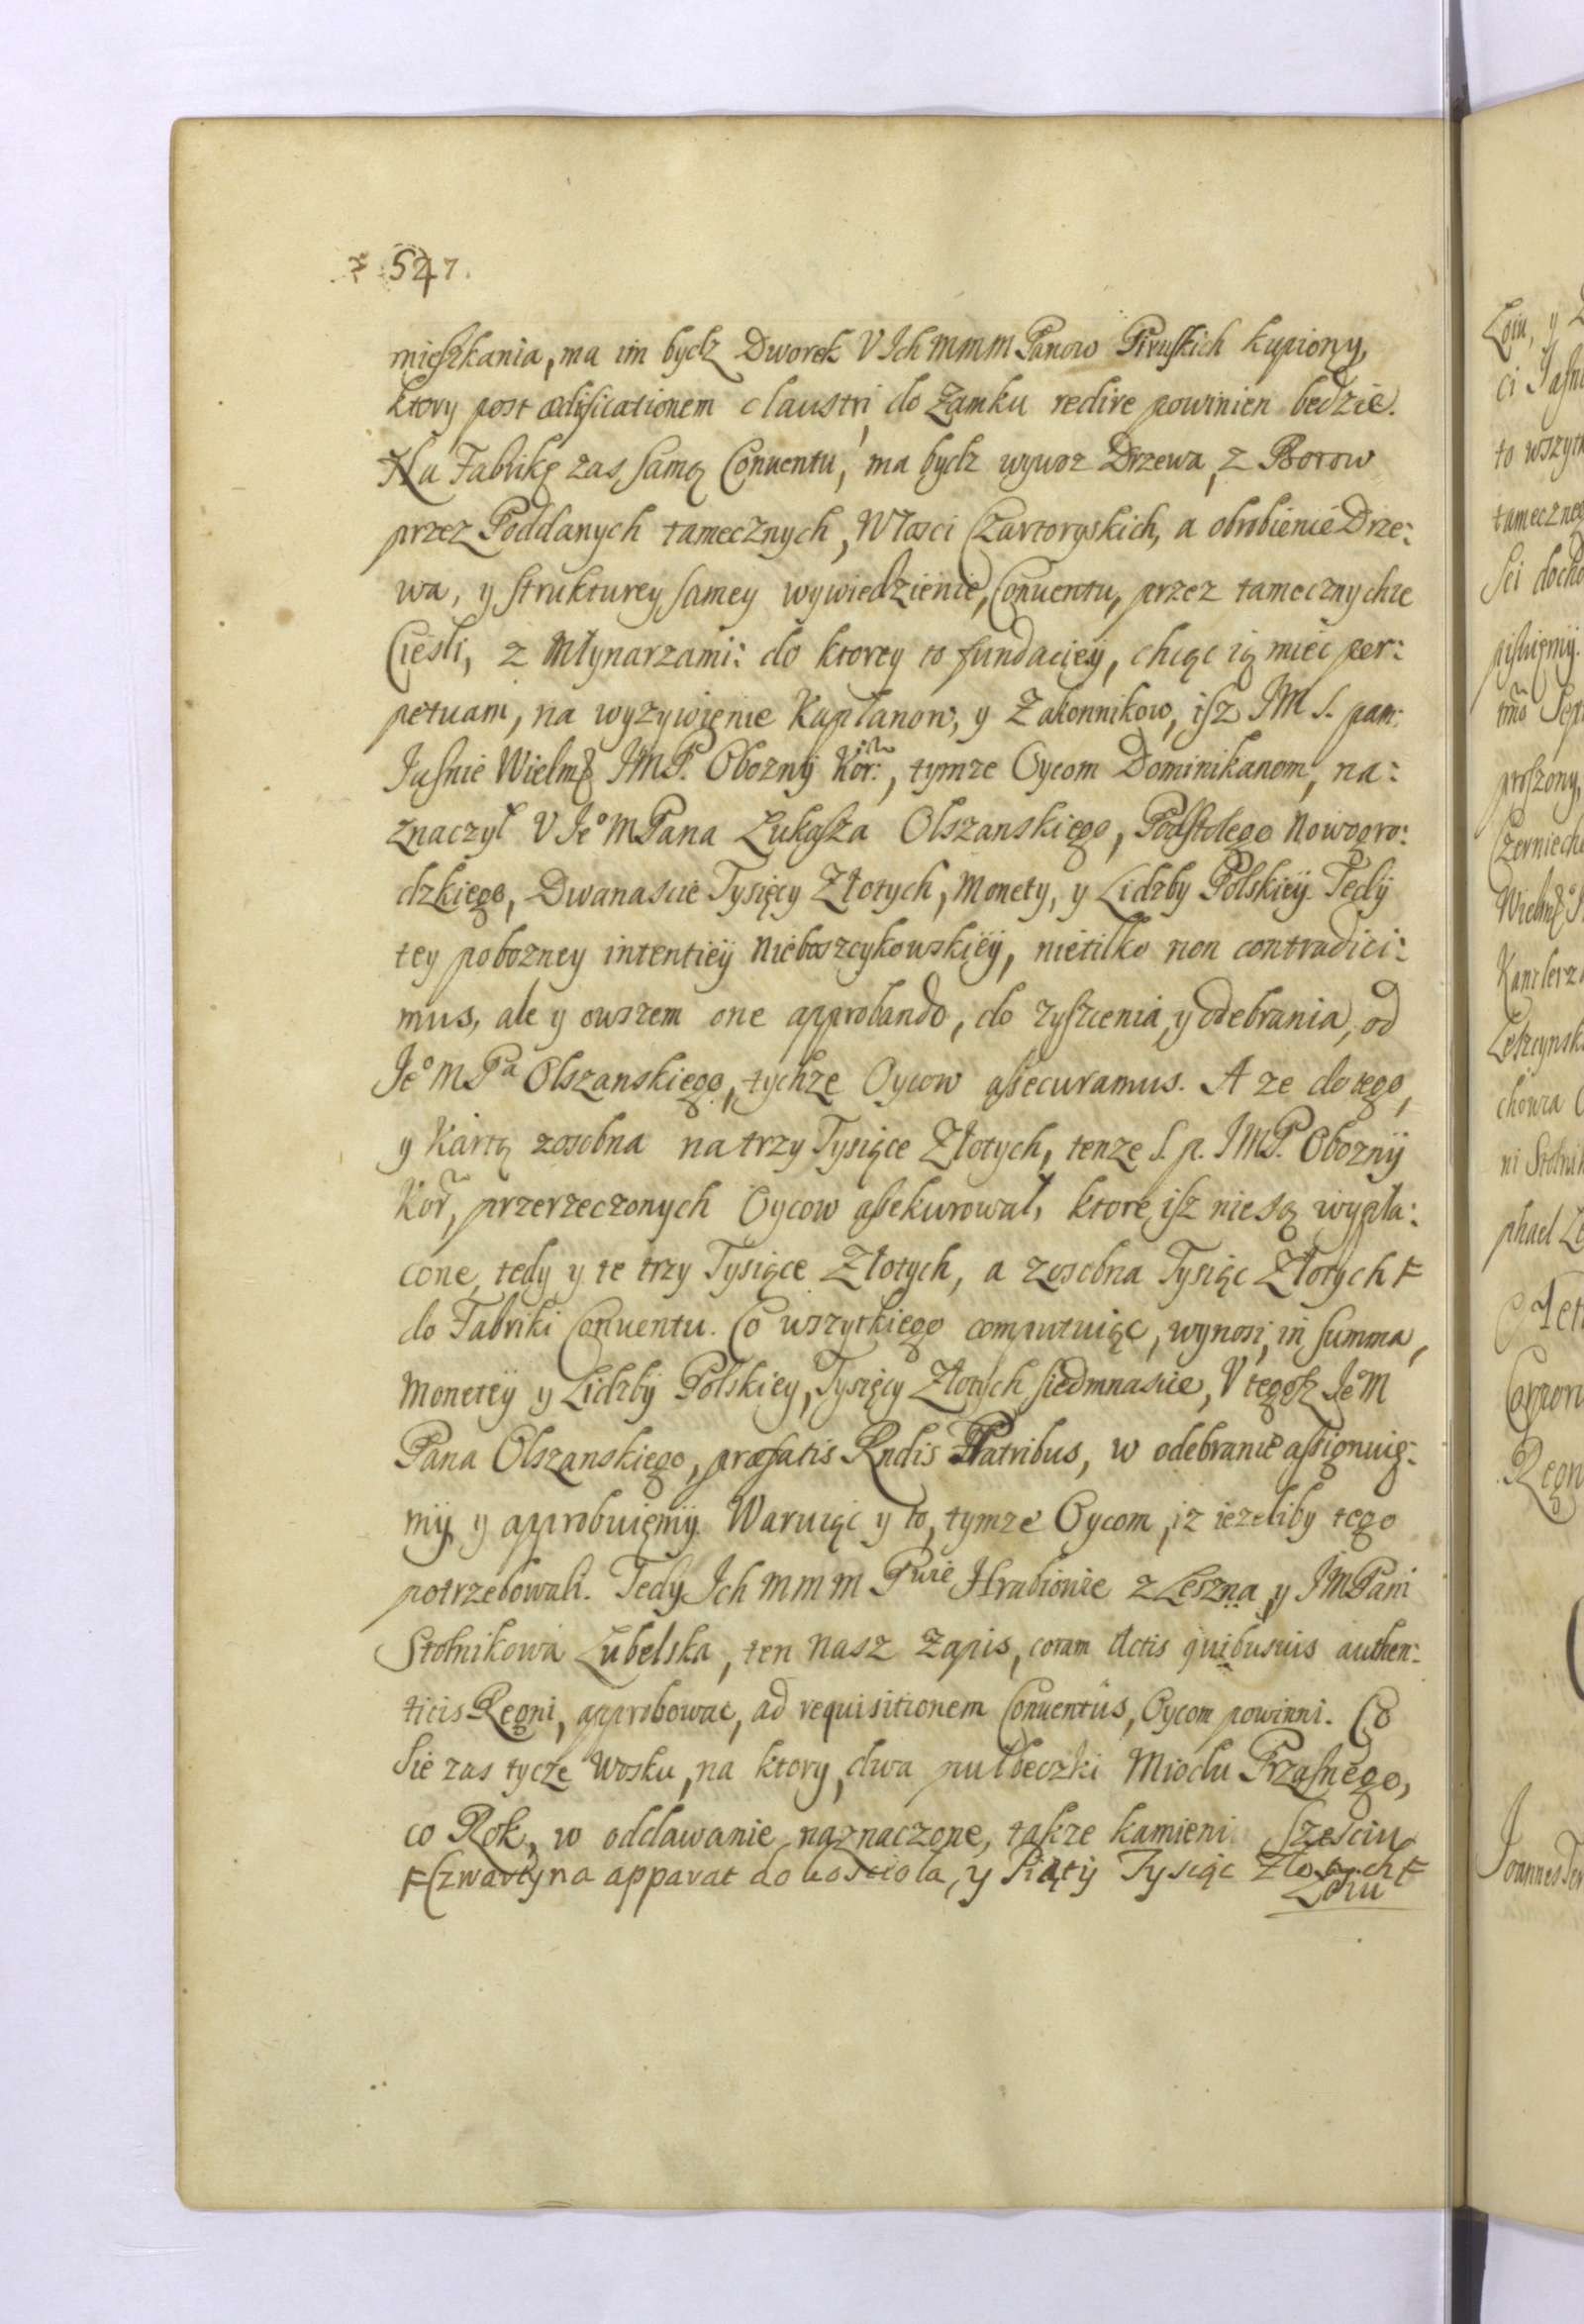 547.
mieszkania, ma im bydz Dworek V Ich mmm Panow Piruskich kupiony,
ktory post ædificationem claustri, do Zamku redire powinien bedzie.
Na Fabrikę zas samą Conuentu, ma bydz wywoz Drzewa, z Borow
przez Poddanych tamecznych, Wlosci Czartoryskich, a obrobienie Drze:
wa, y struktury samey wywiedzienie, Conuentu, przez tamecznychze
Ciesli, z Młynarzami: do ktorey to fundaciey, chcąc ią miec per:
petuam, na wyzywięnie Kapłanow, y Zakonnikow, isz JM S. pam:
Jasnie Wielmż JMP. Obozny Kor:, tymze Oycom Dominikanom, na:
znaczył V Jeº M Pana Lukasza Olszanskiego, Podstolego Nowogro:
dzkiego, Dwanascie Tysięcy Złotych, Monety, y Lidzby Polskiÿ. Tedÿ
tey pobozney intentiÿ Nieboszcykowskiÿ, nietilko non contradici:
mus, ale y owszem one approbando, do zyszcenia, y odebrania, od
Jeº M Pª Olszanskiego, tychze Oycow assecuramus. A ze do tego,
y Kartą zosobna na trzy Tysiące Złotych, tenze S. p. JMP. Oboznÿ
Kor, przerzeczonych Oycow assekurował, ktore isz nie są wypła:
cone, tedy y te trzy Tysiące Złotych, a zosobna Tysiąc Złotych F
do Fabriki Conuentu. Co wszytkiego computuiąc, wynosi, in summa,
Monetÿ y Lidzbÿ Polskiey, Tysięcy Złotych siedmnascie, V tegosz Jeº M
Pana Olszanskiego, præfatis Rndis Patribus, w odebranie assignuię:
mÿ y approbuięmÿ. Waruiąc y to, tymze Oycom, iz iezeliby tego
potrzebowali. Tedy Ich mmm Pwie Hrabiowie z Leszna, y JMPani
Stolnikowa Lubelska, ten nasz Zapis, coram Actis quibusuis authen:
ticis Regni, approbowac, ad requisitionem Conuentûs, Oycom powinni. Co
sie zas tycze Wosku, na ktory, dwa pułbeczki Miodu Przasnego,
co Rok, w oddawanie naznaczone, takze kamieni Sześciu
F Czwarty na apparat do kosciola, y Piątÿ Tysiąc Złotych F
Loiu